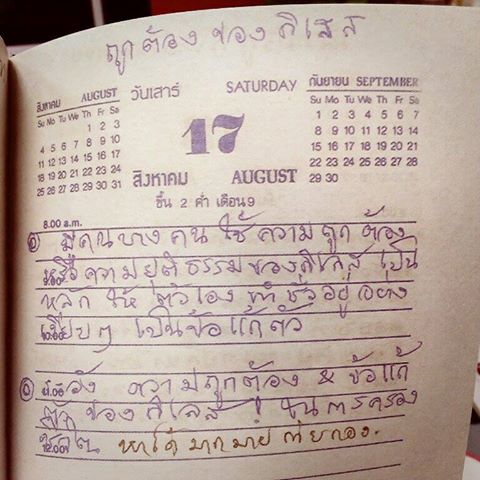 ถูก ต้อง ของ กิเลส
สิงหาคม AUGUST วันเสาร์ SATURDAY กันยายน SEPTEMBER
Su Mo Tu We Th Fr Sa Su Mo Tu We Th Fr Sa
1 2 3 1 2 3 4 5 6 7
4 5 6 7 8 9 10 8 9 10 11 12 13 14
11 12 13 14 15 16 17 15 16 17 18 19 20 21
18 19 20 21 22 23 24 22 23 24 25 26 27 28
25 26 27 28 29 30 31 29 30
17
สิงหาคม AUGUST
ขึ้น 2 ค่ำ เดือน 9
8.00 a.m.
มีคนบางคน ใช้ ความ ถูก ต้อง
หรือ ความยุติธรรม ของกิเลส เป็น
หลัก ให้ ตัวเอง ทำ ชั่วอยู่ อย่าง
เงียบๆ เป็นข้อแก้ตัว
ความถูกต้อง & ข้อแก้
ตัว ของ กิเลส !
12.00 หาได้ มากมาย ก่ายกอง.